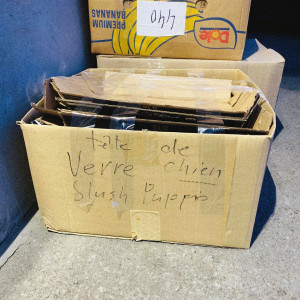 PREMIUM
BANANAS
440
Dole
tête de
Verre chien
Slush Puppie